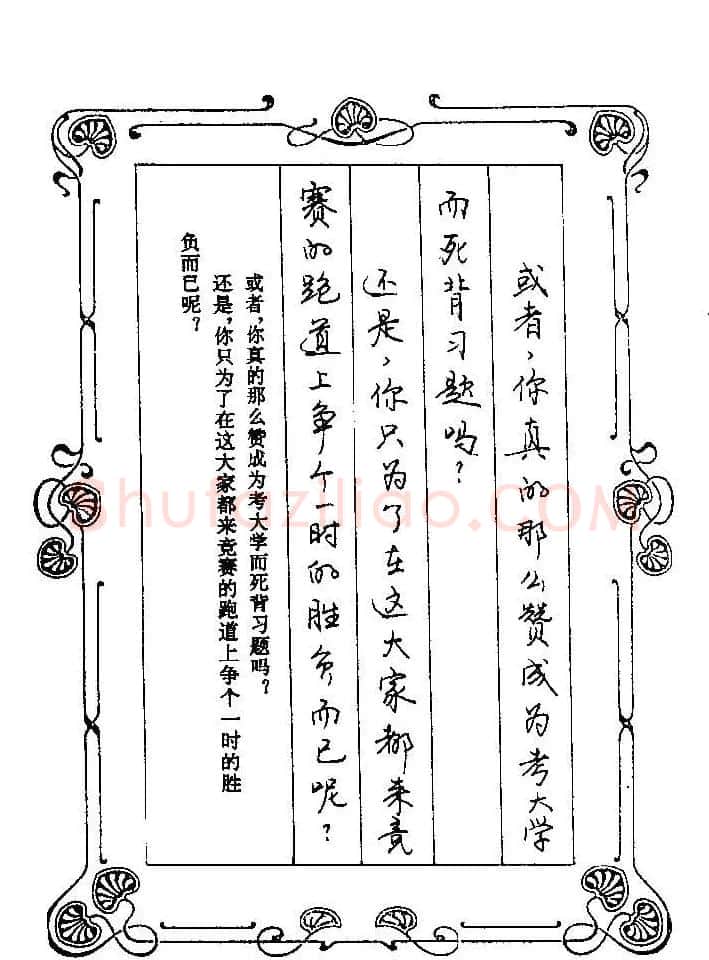 或者，你真的那么赞成为考大学
而死背习题吗？
还是，你只为了在这大家都来竞
赛的跑道上争个一时的胜负而已呢？
或者，你真的那么赞成为考大学而死背习题吗？
还是，你只为了在这大家都来竞赛的跑道上争个一时的胜
负而已呢？
shufaziliao.COM